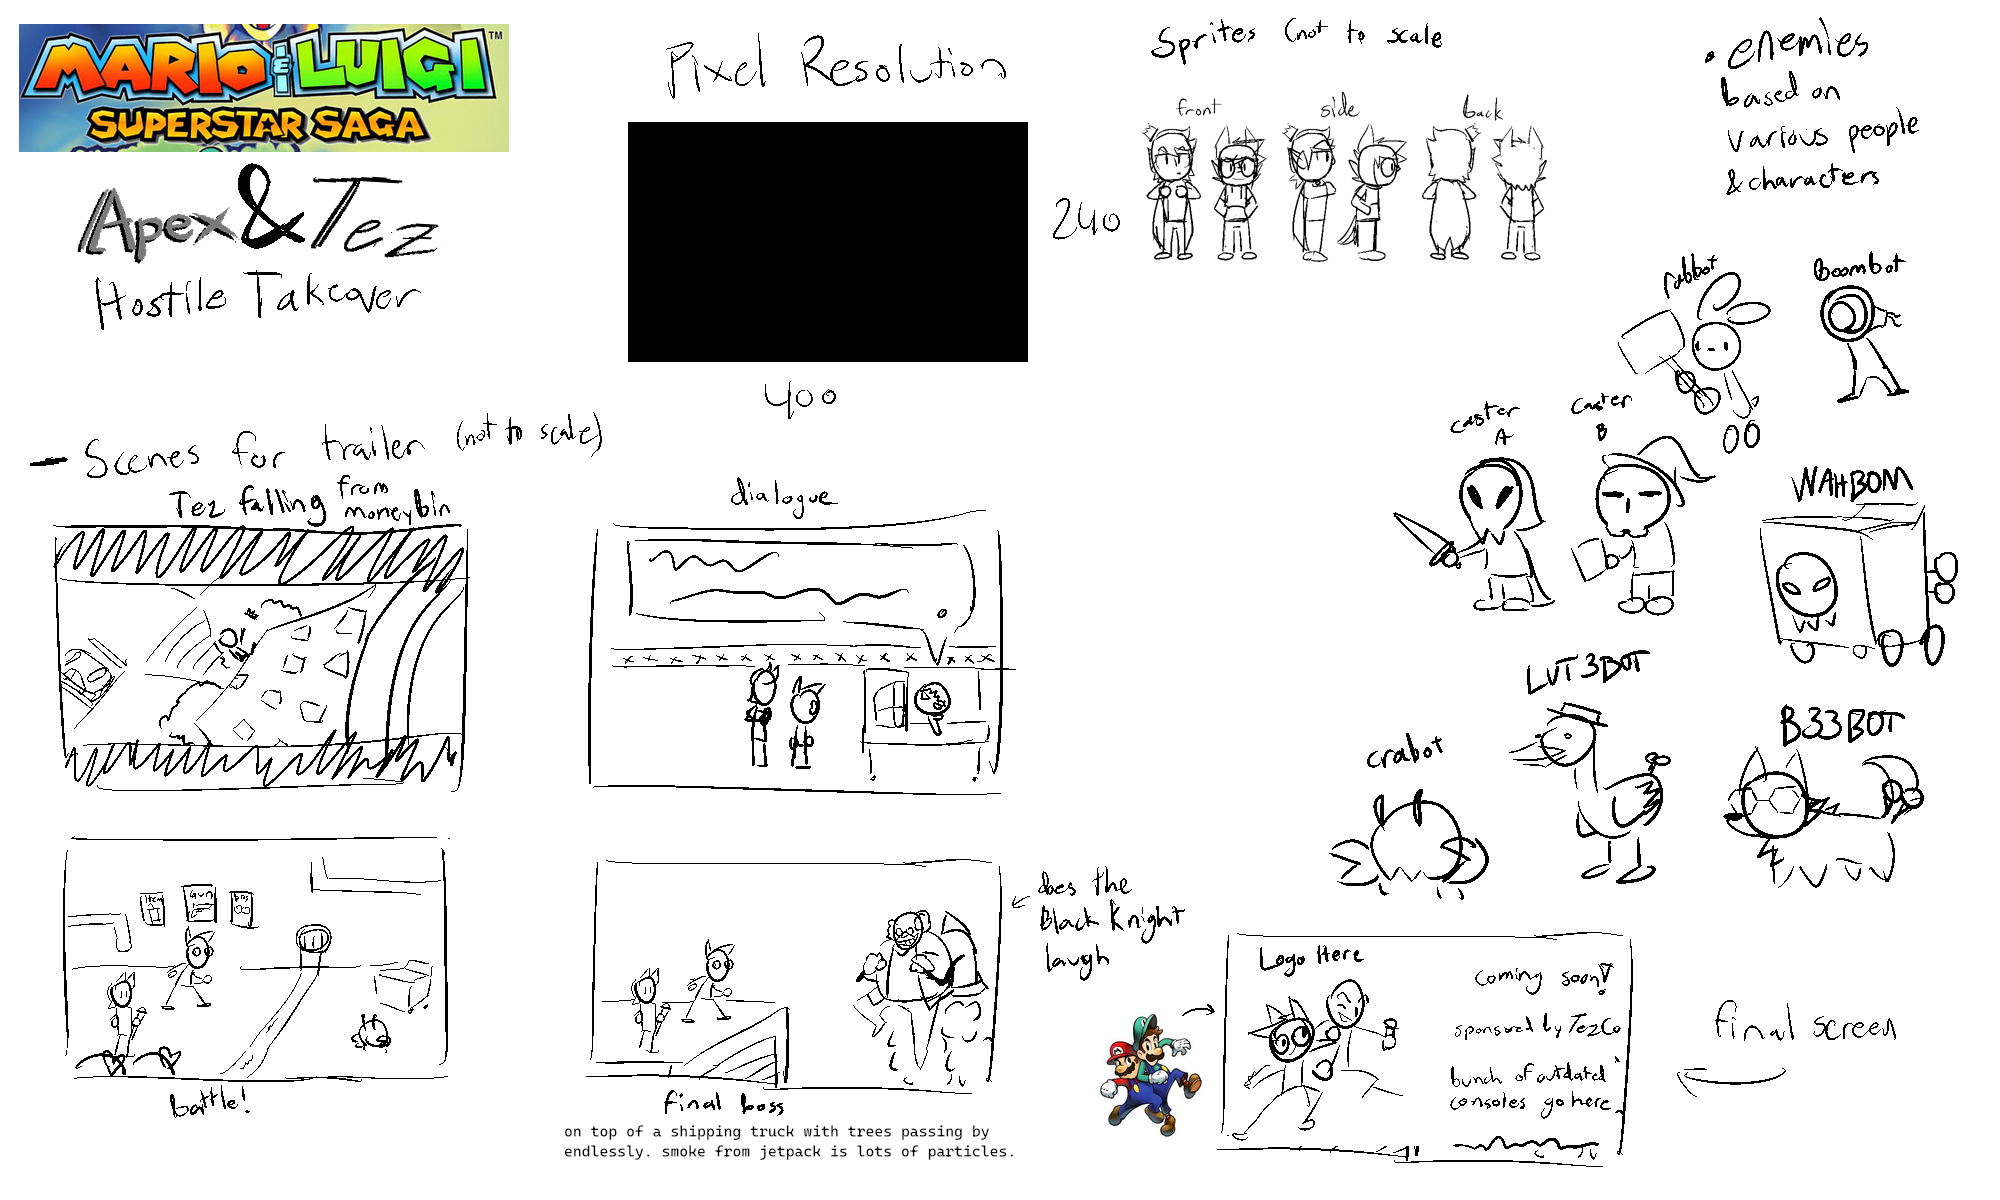 MARIO & LUIGI™
SUPERSTAR SAGA
Apex & Tez
Hostile Takeover
Pixel Resolution
240
400
Sprites (not to scale
front
side
back
• enemies
based on
various people
& characters
rabbot
Boombot
caster
A
caster
B
WAHBOM
LUT3BOT
crabot
B33BOT
- Scenes for trailer (not to scale)
Tez falling from
moneybin
dialogue
Item
Gun
Battle!
final boss
on top of a shipping truck with trees passing by
endlessly. smoke from jetpack is lots of particles.
does the
Black Knight
laugh
Logo Here
coming soon!
sponsored by TezCo
bunch of outdated
consoles go here
final screen